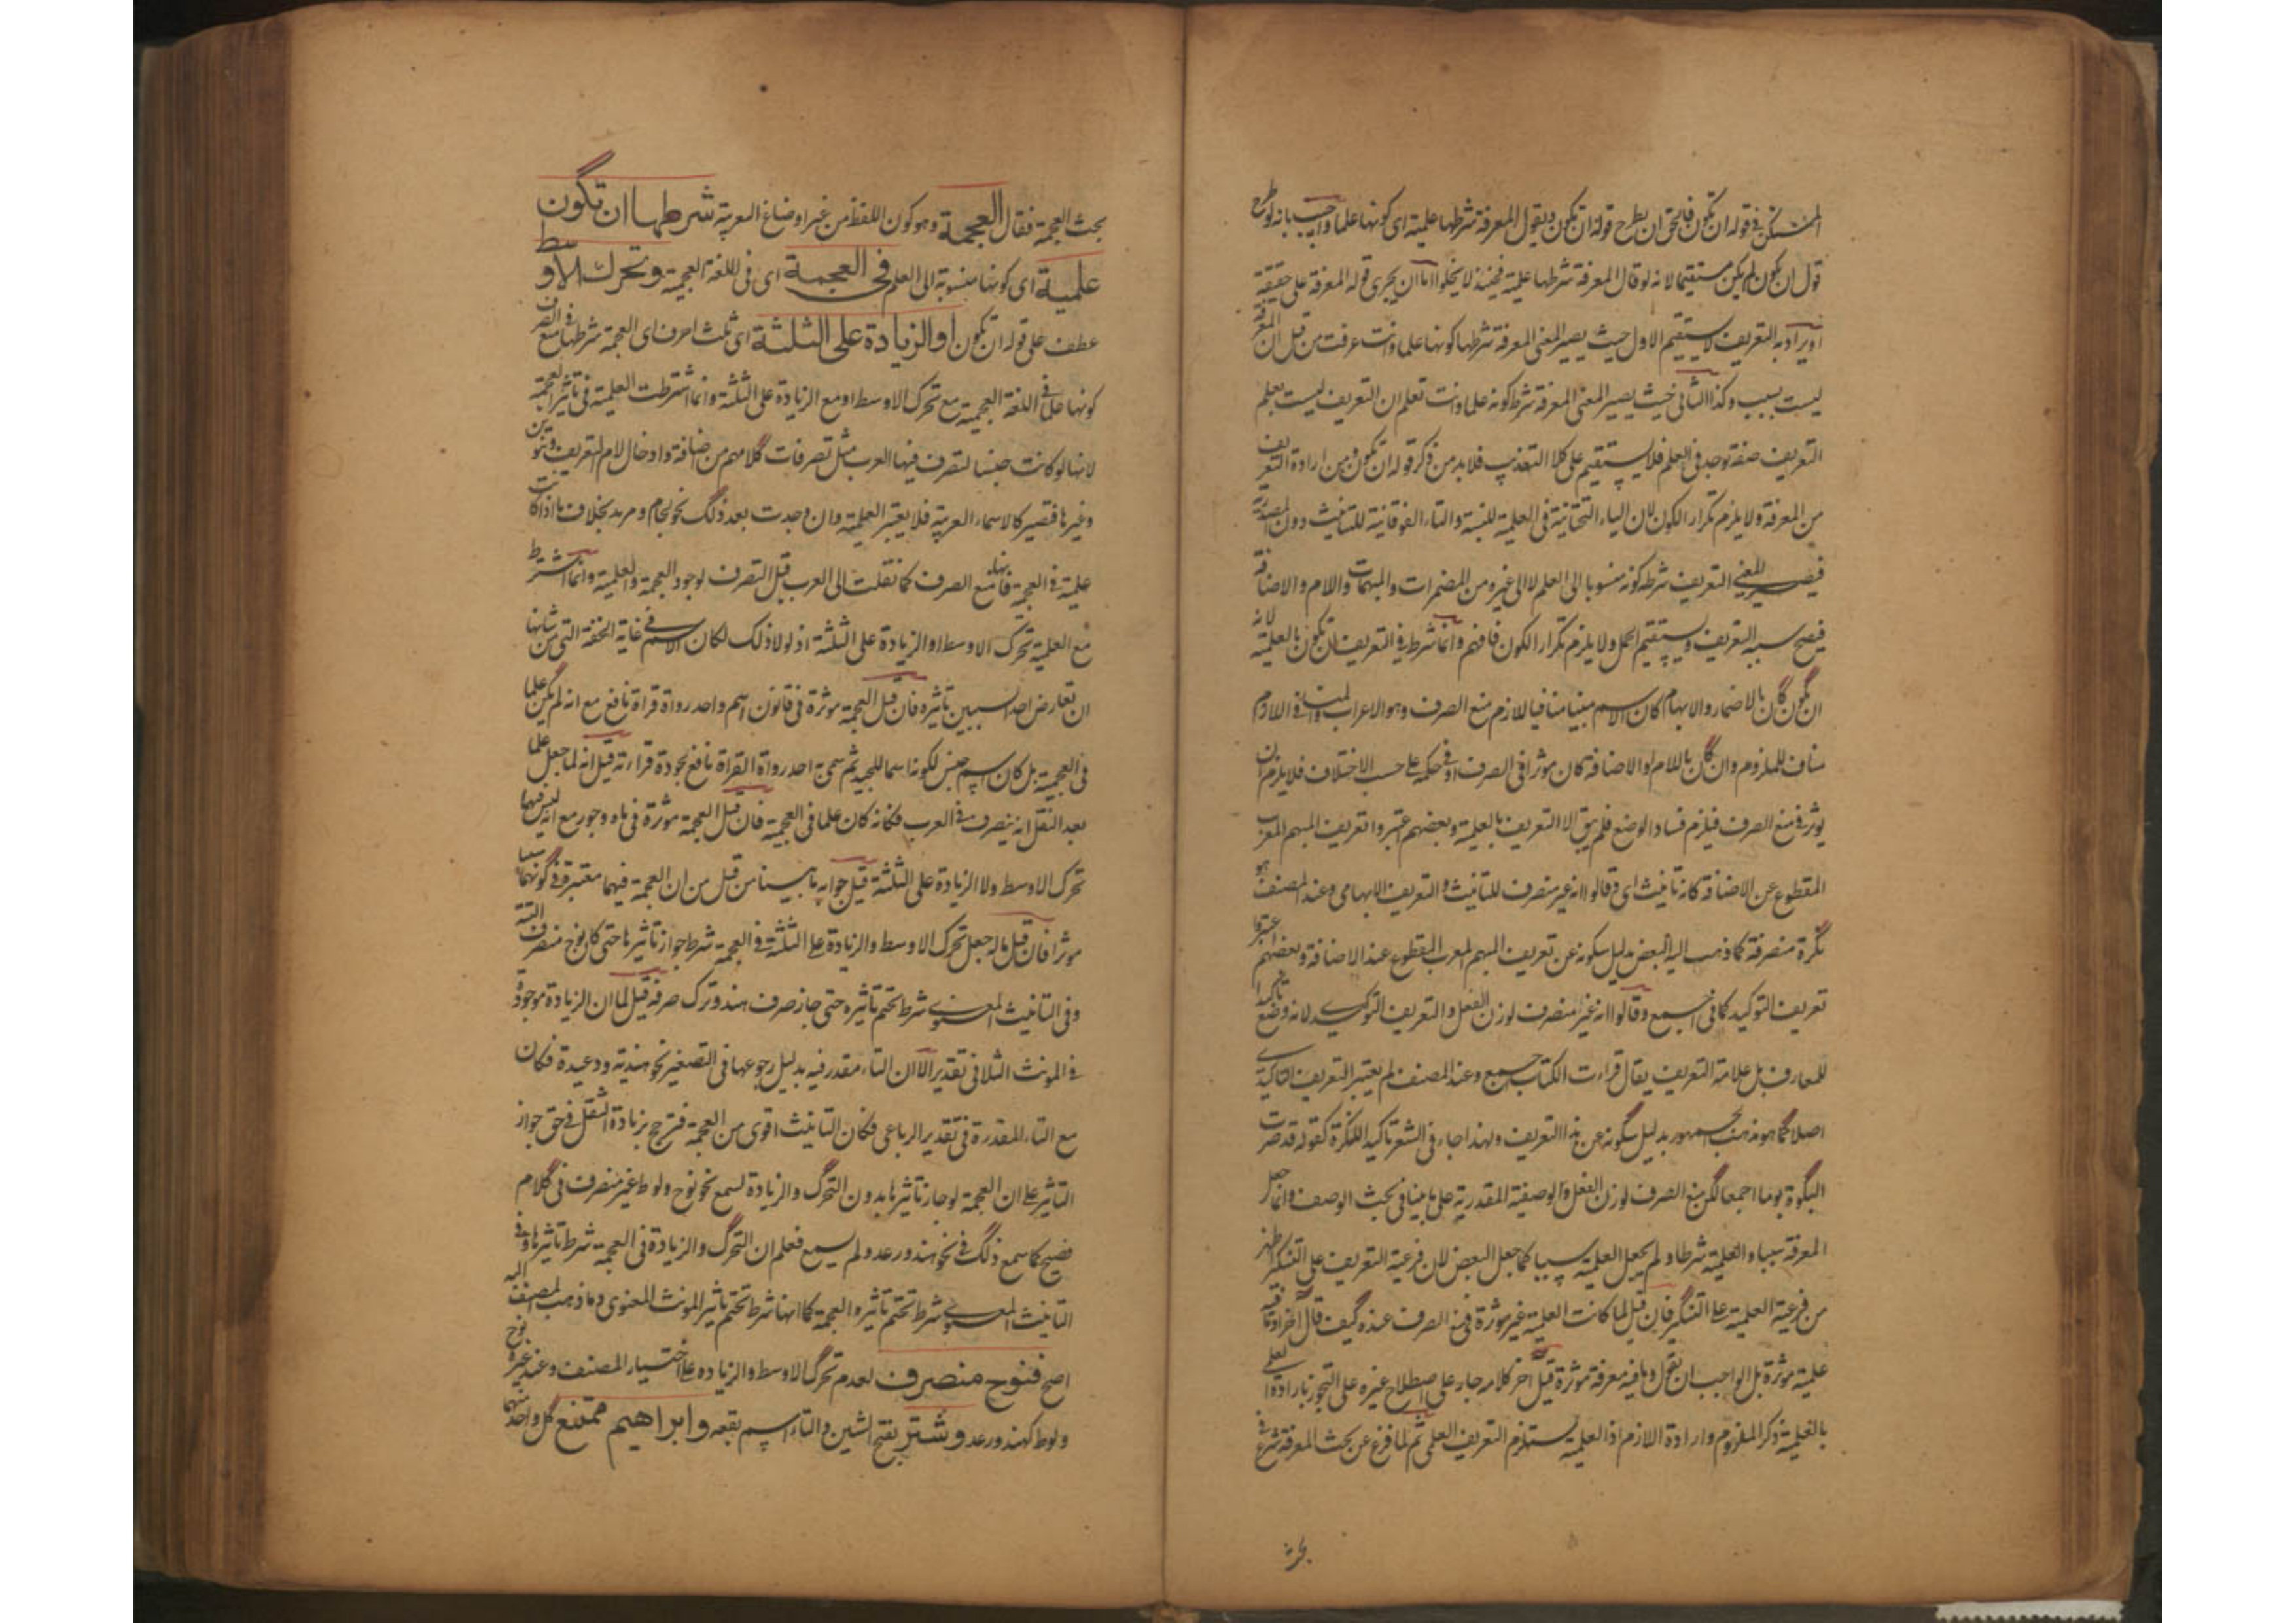 المستكن في قوله ان تكون فالحق ان يطرح قوله ان تكون ويقول المعرفة شرطها علمية اى كونها علما واجيب بانه لو طرح
قوله ان تكون لم يكن مستقيما لانه لو قال المعرفة شرطها علمية فحينئذ لا يخلوا اما ان يجرى قوله المعرفة على حقيقته
او يراد به التعريف لا يستقيم الاول حيث يصير المعنى المعرفة شرطها كونها علما وانت عرفت من قبل ان المعرفة
ليست بسبب وكذا الثانى حيث يصير المعنى المعرفة شرط كونه علما وانت تعلم ان التعريف ليست بعلم
التعريف صفة توجد فى العلم فلا يستقيم على كلا التقديرين فلا بد من ذكر قوله ان تكون ومن ارادة التعريف
من المعرفة ولا يلزم تكرار الكون لان الياء التحتانية فى العلمية للنسبة والتاء الفوقانية للتانيث دون المصدرية
فيصير المعنى التعريف شرطه كونه منسوبا الى العلم لا الى غيره من المضمرات والمبهمات واللام والاضافة
فيصح سببية التعريف ويستقيم الحمل ولا يلزم تكرار الكون فافهم وانما شرط فى التعريف ان تكون بالعلمية لانه
ان يكون كان بالاضمار والابهام كان الاسم مبنيا منافيا للازم منع الصرف وهو الاعراب والمنافى اللازم
مناف للملزوم وان كان باللام او الاضافة كان موثرا فى الصرف او فى حكمه على حسب الاختلاف فلا يلزم ان
يوثر فى منع الصرف فيلزم فساد الوضع فلم يبق الا التعريف بالعلمية وبعضهم اعتبروا تعريف المبهم المعرب
المقطوع عن الاضافة كانه تانيث اى وقالوا انه غير منصرف للتانيث والتعريف الابهامى وعند المصنف هو
نكرة منصرفة كما ذهب اليه البعض بدليل سكوته عن تعريف المبهم المعرب المقطوع عند الاضافة وبعضهم اعتبروا
تعريف التوكيد كما فى اجمع وقالوا انه غير منصرف لوزن الفعل والتعريف التوكيدى لانه وضع تاكيدا
للمعارف بل علامة التعريف يقال قراءت الكتاب اجمع وعند المصنف لم يعتبر التعريف التاكيدى
اصلا كما هو مذهب الجمهور بدليل سكوته عن هذا التعريف ولهذا جاء فى الشعر تاكيد النكرة كقوله قد صرت
البكوة يوما اجمعا لكن منع الصرف لوزن الفعل والوصفية المقدرية على ما بينا فى بحث الوصف وانما جعل
المعرفة سببا والعلمية شرطا ولم يجعل العلمية سببا كما جعل البعض لان فرعية التعريف على التنكير اظهر
من فرعية العلمية على التنكير فان قيل لما كانت العلمية غير موثرة فى منع الصرف عنده كيف قال اخرا وما فيه
علمية موثرة بل الواجب ان يقول وما فيه معرفة موثرة قيل آخر كلامه جار على اصطلاح غيره على التجوز بارادة
بالعلمية ذكر الملزوم وارادة اللازم اذ العلمية يستلزم التعريف العلمى ثم لما فرغ عن بحث المعرفة شرع فى
بحث
بحث العجمة فقال العجمة وهو كون اللفظ من غير اوضاع العربية شرطها ان تكون
علمية اى كونها منسوبة الى العلم فى العجمة اى فى اللغة العجمية وتحرك الاوسط
عطف على قوله ان تكون او الزيادة على الثلثة اى ثلث احرف اى العجمة شرطها فى الصرف مع
كونها علما فى اللغة العجمية مع تحرك الاوسط او مع الزيادة على الثلثة وانما اشترطت العلمية فى تاثير العجمة
لانها لو كانت جنسا لتصرف فيها العرب مثل تصرفات كلامهم من اضافة وادخال لام التعريف وتنوين
وغيرها فتصير كالاسماء العربية فلا يعتبر العلمية وان وجدت بعد ذلك نحو لجام ومريد بخلاف ما اذا كانت
علمية فى العجمة فانها تمنع الصرف كما نقلت الى العرب قبل التصرف لوجود العجمة والعلمية وانما اشترط
مع العلمية تحرك الاوسط او الزيادة على الثلثة اذ لولا ذلك لكان الاسم فى غاية الخفة التى من شانها
ان تعارض احد السببين تاثيره فان قيل العجمة موثرة فى قانون اسم واحد رواة قراة نافع مع انه لم يكن علما
فى العجمية بل كان اسم جنس لكونه اسما للجيد ثم سمى به احد رواة القراة نافع لجودة قراءته قيل انه لما جعل علما
بعد النقل انه ينصرف فى العرب فكانه كان علما فى العجمية فان قيل العجمة موثرة فى ماه وجور مع انه ليس فيهما
تحرك الاوسط ولا الزيادة على الثلثة قيل جوابه ما بينا من قبل من ان العجمة فيهما معتبرة فى كونهما سببا
موثرا فان قيل ما له جعل تحرك الاوسط والزيادة على الثلثة فى العجمة شرط جواز تاثيرها حتى كان نوح منصرف البتة
وفى التانيث المعنوى شرط تحتم تاثيره حتى جاز صرف هند وترك صرفه قيل لما ان الزيادة موجودة
فى المونث الثلاثى تقديرا لان التاء مقدر فيه بدليل رجوعها فى التصغير نحو هنيدة ودعيدة فكان
مع التاء المقدرة فى تقدير الرباعى فكان التانيث اقوى من العجمة فترجح بزيادة الثقل فى حق جواز
التاثير على ان العجمة لو جاز تاثيرها بدون التحرك والزيادة لسمع نحو نوح ولوط غير منصرف فى كلام
فصيح كما سمع ذلك فى نحو هند ورعد ولم يسمع فعلم ان التحرك والزيادة فى العجمة شرط تاثيرها وفى
التانيث المعنوى شرط تحتم تاثيره والعجمة كما انها شرط تحتم تاثير المونث المعنوى وما ذهب اليه المصنف
اصح فنوح منصرف لعدم تحرك الاوسط والزيادة على اختيار المصنف وعند غيره نوح
ولوط كهند ورعد وشتر بفتح الشين والتاء اسم بقعة وابراهيم ممتنع كل واحد منهما